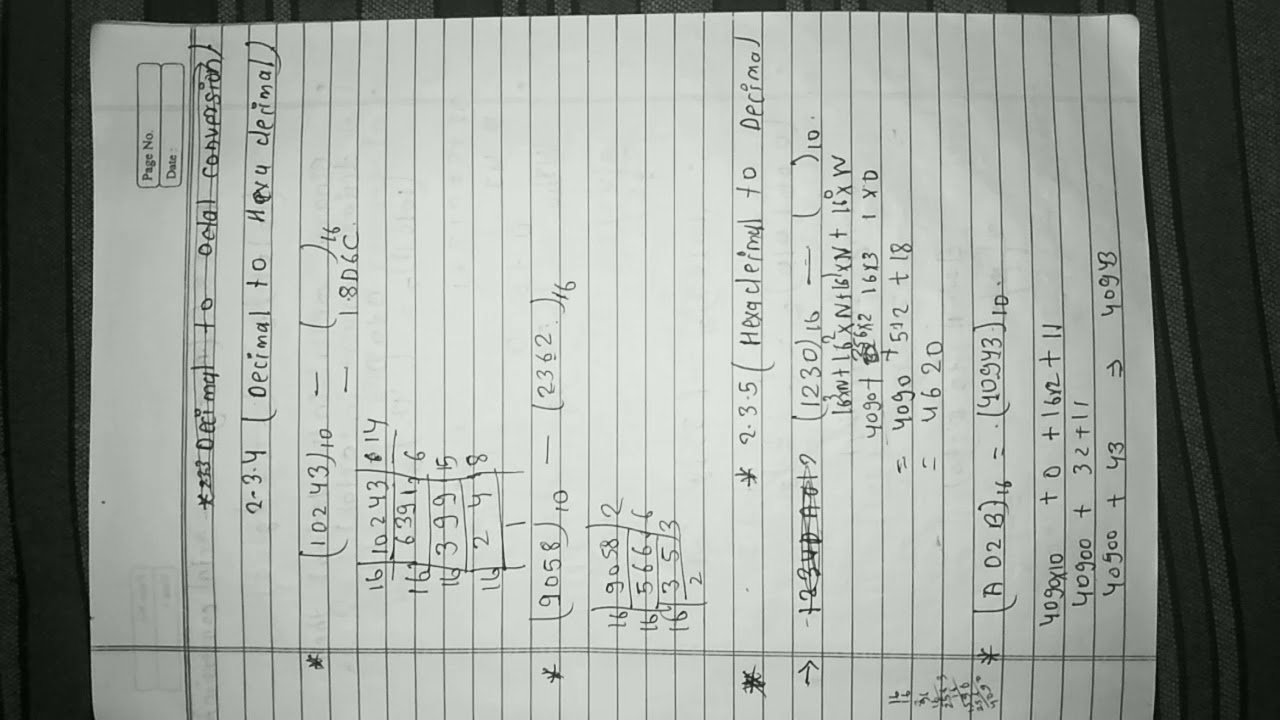 Page No.
Date :
Decimal to octal conversion)
2.3.4 (Decimal to Hexa decimal)
* (10243)10 — ( )16
— 1.8D6C.
16 | 10243 | 14
16 | 6391 | 6
16 | 399 | 15
16 | 24 | 8
1
* (9058)10 — (2362.)16
16 | 9058 | 2
16 | 566 | 6
16 | 35 | 3
2
* * 2.3.5 (Hexadeimal to Decimal
→ (1230)16 — ( )10.
16³N+16²×N+16¹×N+16⁰×N
4090+ 256×2 16×3 1×0
= 4090 + 512 + 18
= 4620
* (A02B)16 = (40943)10.
4090×10 + 0 + 16×2 + 11
40900 + 32+11
40900 + 43 ⇒ 40943